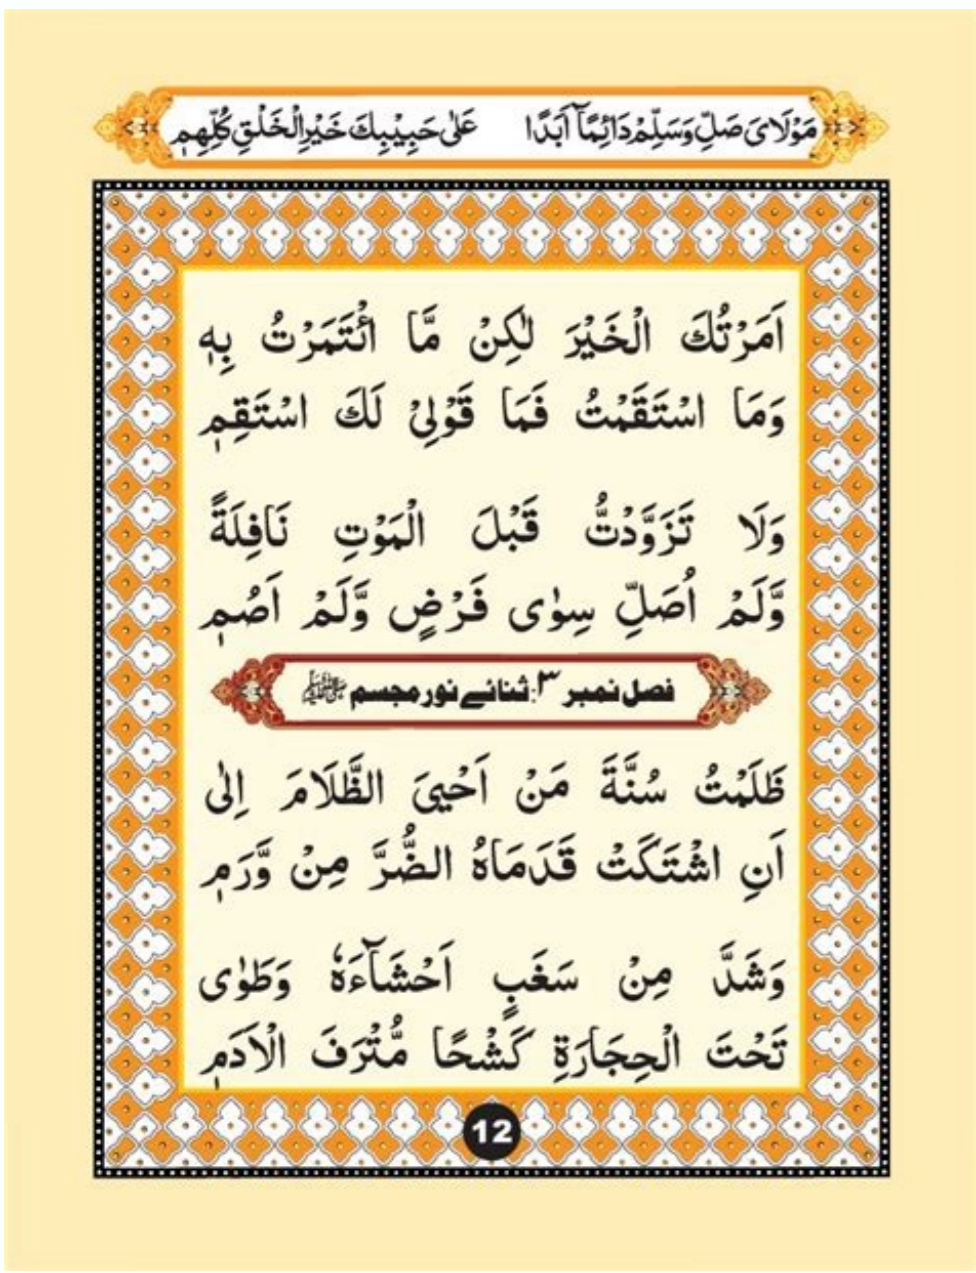 مَوْلَایَ صَلِّ وَسَلِّمْ دَائِمًاۤ اَبَدًا عَلٰی حَبِیْبِكَ خَیْرِ الْخَلْقِ كُلِّهِمٖ
اَمَرْتُكَ الْخَیْرَ لٰكِنْ مَّا ائْتَمَرْتُ بِهٖ
وَمَا اسْتَقَمْتُ فَمَا قَوْلِیْ لَكَ اسْتَقِمٖ
وَلَا تَزَوَّدْتُّ قَبْلَ الْمَوْتِ نَافِلَةً
وَّلَمْ اُصَلِّ سِوٰی فَرْضٍ وَّلَمْ اَصُمٖ
فصل نمبر ۳: ثنائے نور مجسم ﷺ
ظَلَمْتُ سُنَّةَ مَنْ اَحْیَی الظَّلَامَ اِلٰی
اَنِ اشْتَكَتْ قَدَمَاهُ الضُّرَّ مِنْ وَّرَمٖ
وَشَدَّ مِنْ سَغَبٍ اَحْشَآءَهٗ وَطَوٰی
تَحْتَ الْحِجَارَةِ كَشْحًا مُّتْرَفَ الْاَدَمٖ
12